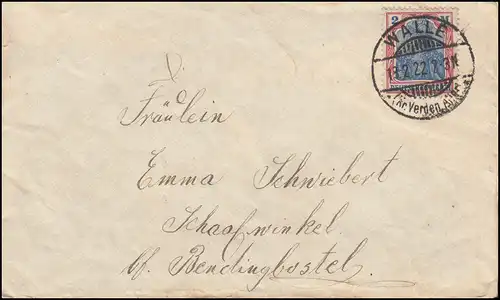 2 M
WALLE
17.2.22 2-3N
(Kr. Verden, Aller)
Fräulein
Emma Schwiebert
Schaafwinkel.
bf. Bendingbostel,